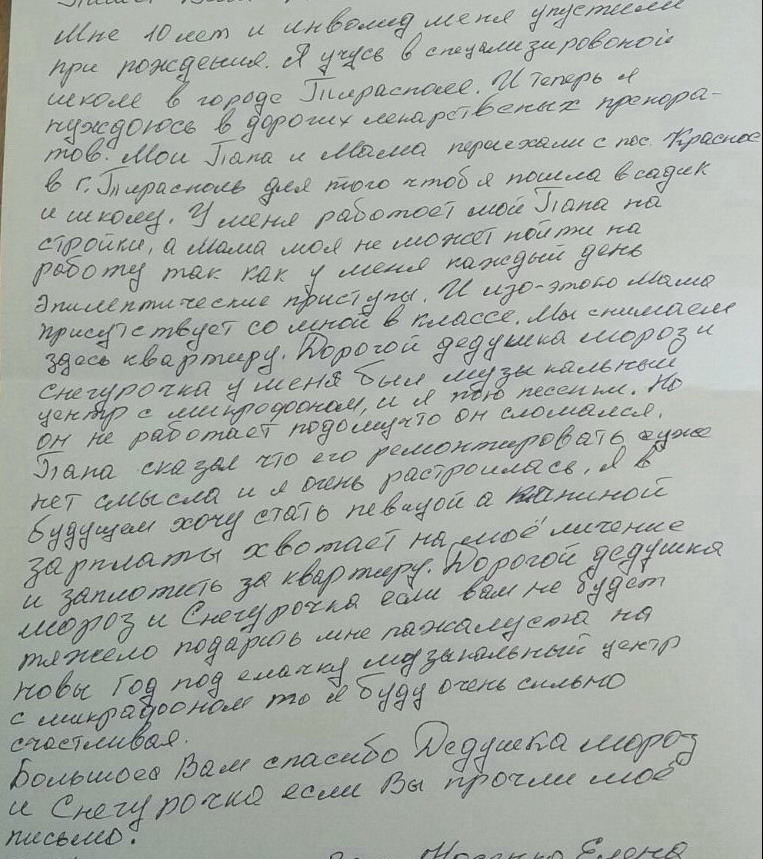 Мне 10 лет и инволид меня упустили
при рождения. Я учусь в специализировоной
школе в городе Тирасполе. И теперь я
нуждоюсь в дорогих лекарственых препора-
тов. Мои Папа и Мама переехали с пос. Красное
в г. Тирасполь для того чтоб я пошла в садик
и школу. У меня работоет мой Папа на
стройки, а Мама моя не может пойти на
работу так как у меня каждый день
эпилептические приступы. И изо-этого Мама
присутствует со мной в классе. Мы снимаем
здесь квартиру. Дорогой дедушка мороз и
снегурочка у меня был музыкальный
центр с микродооном, и я пою песеньи. Но
он не работает подомучто он сломался.
Папа сказал что его ремонтировать уже
нет смысла и я очень растроилась. Я в
будущем хочу стать певицой а папиной
зарплаты хвотает на моё личение
и заплотить за квартиру. Дорогой дедушка
мороз и Снегурочка если вам не будет
тяжело подарить мне пажалуста на
новы Год под елачку музыкальный центр
с микрадооном то я буду очень сильно
счастливая.
Большоее Вам спасибо Дедушка мороз
и Снегурочка если Вы прочли моё
письмо.
Елена